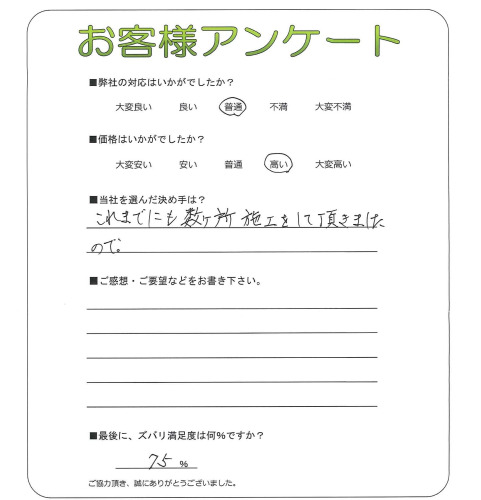 お客様アンケート
■弊社の対応はいかがでしたか？
大変良い 良い 普通 不満 大変不満
■価格はいかがでしたか？
大変安い 安い 普通 高い 大変高い
■当社を選んだ決め手は？
これまでにも数ヶ所施工をして頂きました
ので。
■ご感想・ご要望などをお書き下さい。
■最後に、ズバリ満足度は何%ですか？
75 %
ご協力頂き、誠にありがとうございました。